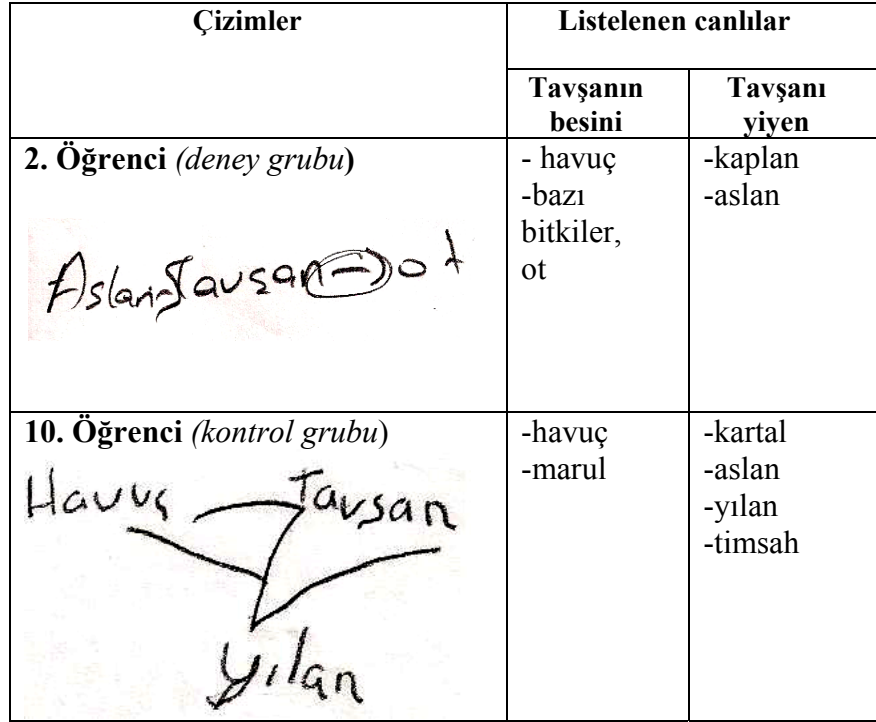 Çizimler
Listelenen canlılar
Tavşanın besini
Tavşanı yiyen
2. Öğrenci (deney grubu)
Aslan Tavşan ot
- havuç
-bazı
bitkiler,
ot
-kaplan
-aslan
10. Öğrenci (kontrol grubu)
Havuç Tavşan
yılan
-havuç
-marul
-kartal
-aslan
-yılan
-timsah